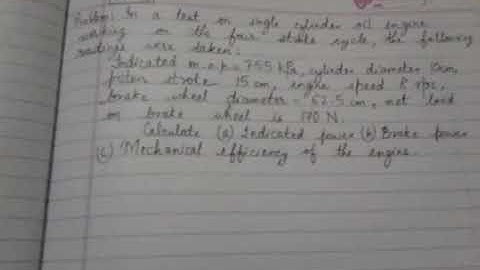 Problem: In a test on single cylinder oil engine
working on the four stroke cycle, the following
readings were taken:
Indicated m.e.p = 755 kPa, cylinder diameter 10cm,
piston stroke 15 cm, engine speed 8 rps,
brake wheel diameter = 62.5 cm, net load
on brake wheel is 170 N.
Calculate (a) Indicated power (b) Brake power
(c) Mechanical efficiency of the engine.